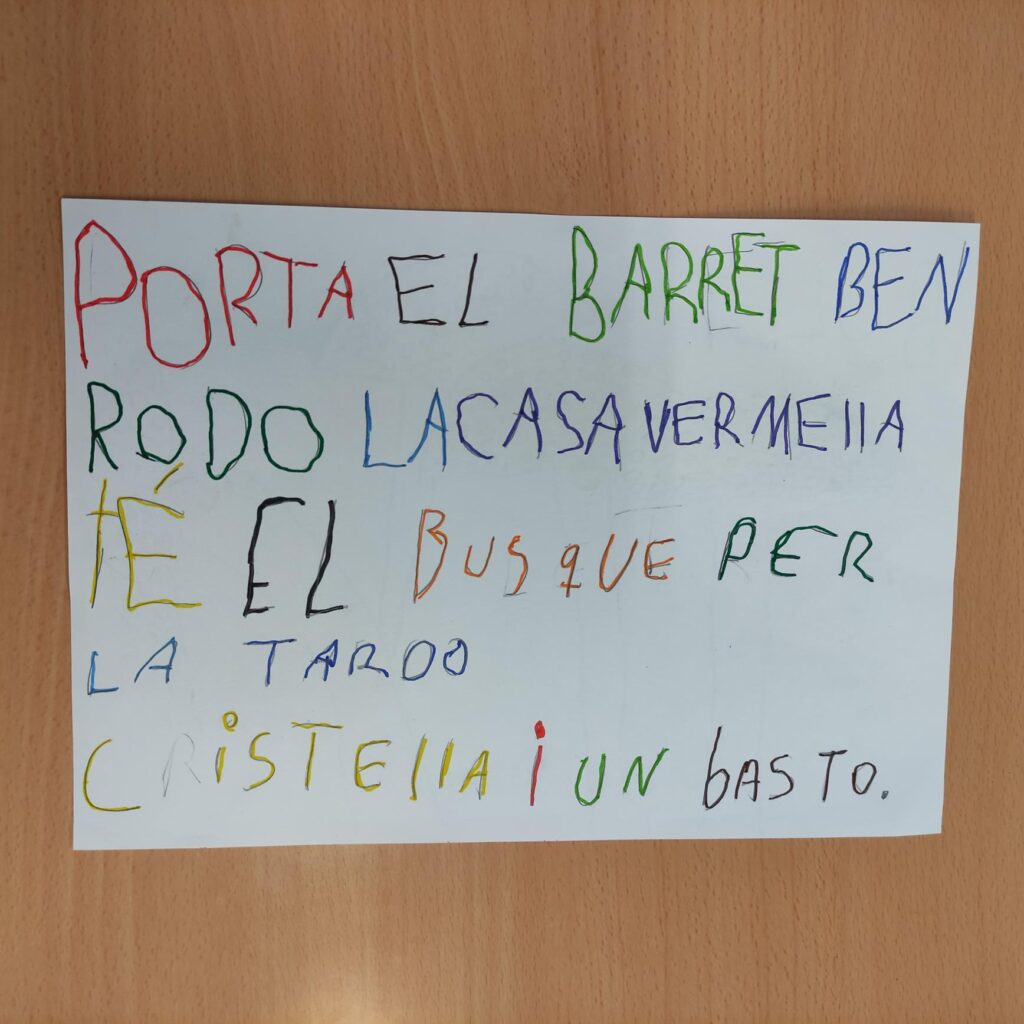 PORTA EL BARRET BEN
RODO LA CASA VERMEllA
TÉ EL BUSQUE PER
LA TARDO
CRiSTEllA i UN bASTO.